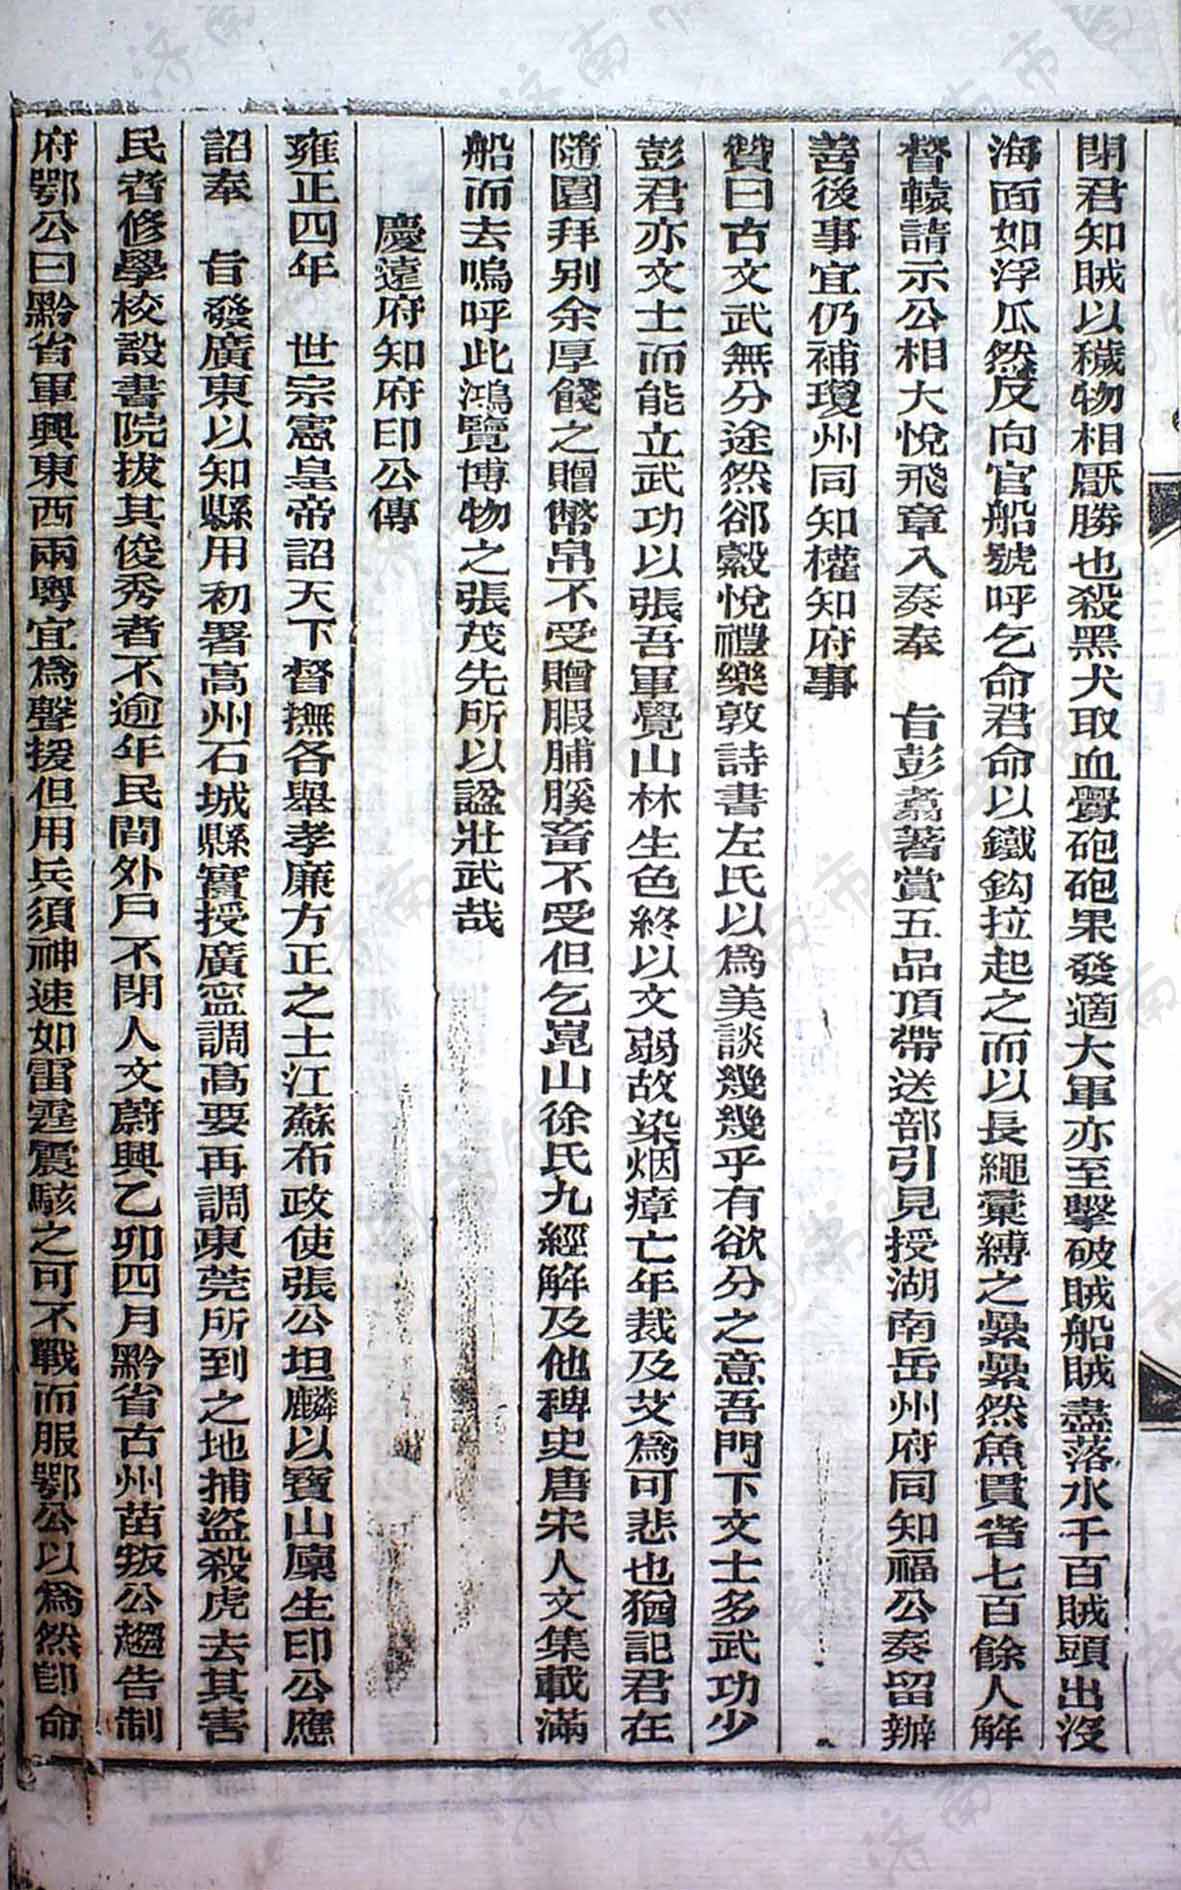 閉君知賊以穢物相厭勝也殺黑犬取血釁砲砲果發適大軍亦至擊破賊船賊盡落水千百賊頭出沒
海面如浮瓜然反向官船號呼乞命君命以鐵鈎拉起之而以長繩彙縛之纍纍然魚貫者七百餘人解
督轅請示公相大悅飛章入奏奉　旨彭翥著賞五品頂帶送部引見授湖南岳州府同知福公奏留辦
善後事宜仍補瓊州同知權知府事
贊曰古文武無分途然郤縠悅禮樂敦詩書左氏以爲美談幾幾乎有欲分之意吾門下文士多武功少
彭君亦文士而能立武功以張吾軍覺山林生色終以文弱故染烟瘴亡年裁及艾爲可悲也猶記君在
隨園拜别余厚餞之贈幣帛不受贈服脯腶畜不受但乞崑山徐氏九經解及他稗史唐宋人文集載滿
船而去嗚呼此鴻覽博物之張茂先所以諡壯武哉
慶遠府知府印公傳
雍正四年　世宗憲皇帝詔天下督撫各舉孝廉方正之士江蘇布政使張公坦麟以寶山廩生印公應
詔奉　旨發廣東以知縣用初署高州石城縣實授廣寧調高要再調東莞所到之地捕盜殺虎去其害
民者修學校設書院拔其俊秀者不逾年民間外戶不閉人文蔚興乙卯四月黔省古州苗叛公趨告制
府鄂公曰黔省軍興東西兩粵宜爲聲援但用兵須神速如雷霆震駭之可不戰而服鄂公以爲然卽命